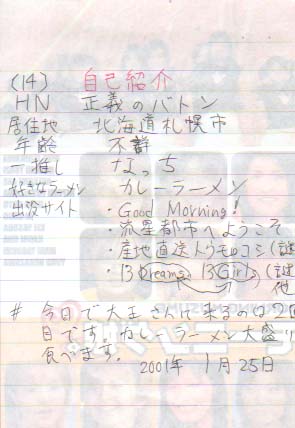 (14) 自己紹介
HN 正義のバトン
居住地 北海道札幌市
年齢 不詳
一推し なっち
好きなラーメン カレーラーメン
出没サイト ・Good Morning!
・流星都市へようこそ
・産地直送トウモロコシ(謎
・13 Dreams 13 Girls (謎
他
# 今日で大王さんに来るのは2回
目です。カレーラーメン大盛り
食べます。
2001年 1月25日